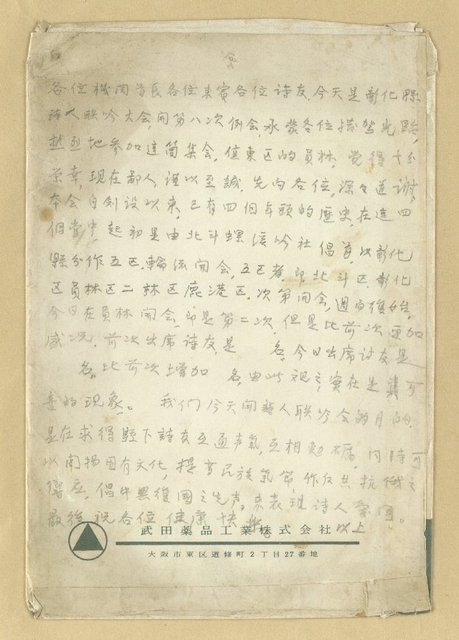 各位機関首長各位来賓各位詩友、今天是彰化縣
詩人联吟大会、開第八次例会、承蒙各位撥駕光臨、
熱烈地参加這箇集会、值東区的員林、覚得十分
荣幸、現在鄙人、謹以至誠、先向各位、深々道謝、
本会自创設以来、已有四個年頭的歷史在這四
個當中、起初是由北斗螺溪吟社倡首、以彰化
縣分作五区、輪流開会、五区者即北斗区、彰化
区員林区二林区鹿港区、次第開会、週而復始。
今日在員林開会、即是第二次、但是比前次更加
盛况、前次出席詩友是　　名、今日出席詩友是
名、比前次增加　　名、由此視之、實在是真可
喜的現象。　我们今天開詩人联吟会的目的、
是在求得縣下詩友互通声氣、互相勉励、同時可
以闡揚固有文化、提高民族氣節、作反共抗俄之
復國之先声、来表現詩人
最後祝各位健康快樂。以上
武田薬品工業株式会社
大阪市東区道修町2丁目27番地